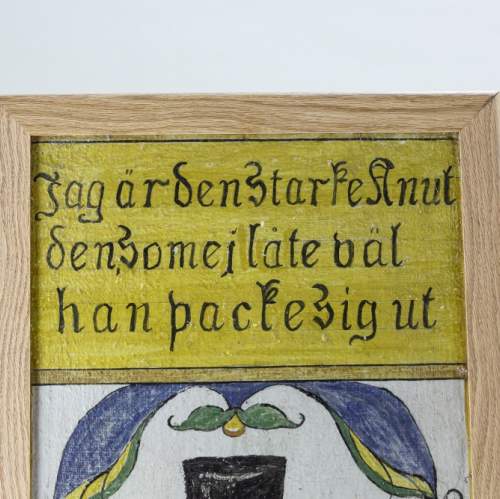 Jag är den starke Knut
den, som ej låte väl
han packe sig ut